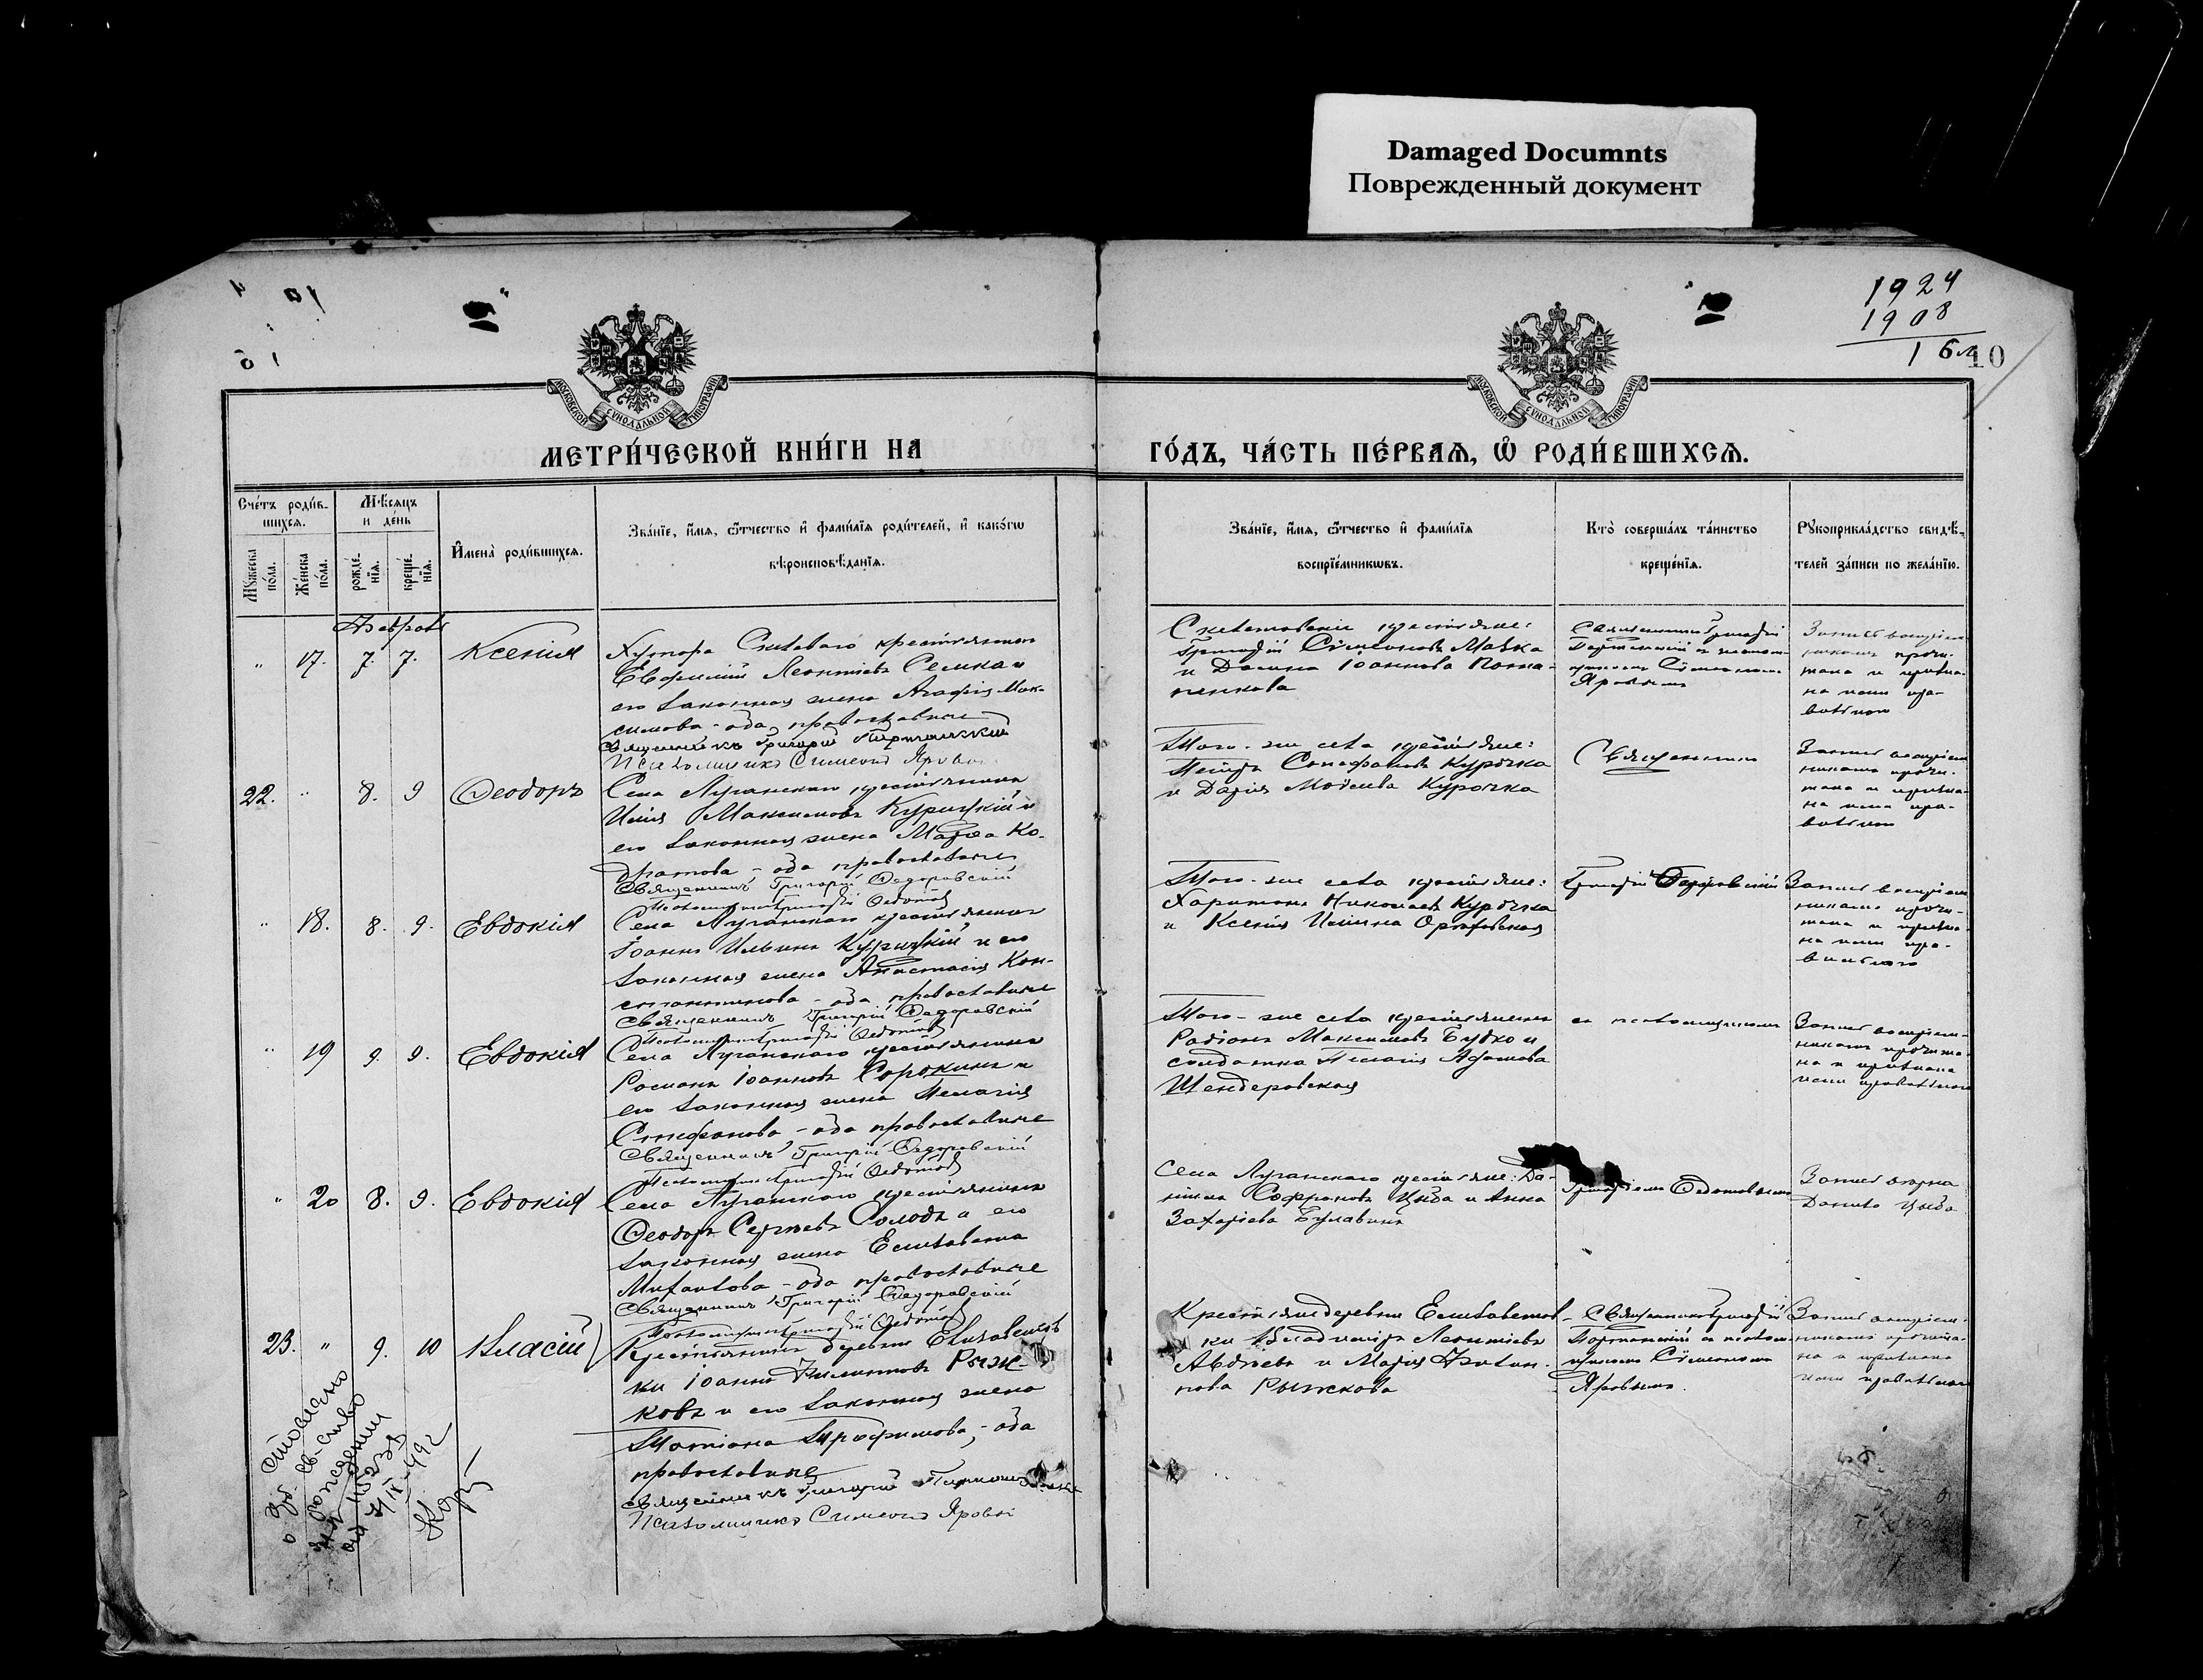 Damaged Documnts
Поврежденный документ
1924
1908
16
10
МОСКОВСКОЙ СѴНОДАЛЬНОЙ ТИПОГРАФІИ
МОСКОВСКОЙ СѴНОДАЛЬНОЙ ТИПОГРАФІИ
МЕТРИ́ЧЕСКОЙ КНИ́ГИ НА
ГО́ДЪ, ЧА́СТЬ ПЕ́РВАЯ, Ѡ҆ РОДИ́ВШИХСЯ.
Сче́тъ роди́в-
шихся.
Мѣ́сяцъ
и де́нь
Мꙋ́жеска по́ла.
Же́нска по́ла.
рожде́нїя.
креще́нїя.
И҆мена̀ роди́вшихся.
Зва́нїе, и҆́мя, ѻ҆́тчество и҆ фами́лїя роди́телей, и҆ како́гѡ
вѣроисповѣ́данїя.
Зва́нїе, и҆́мя, ѻ҆́тчество и҆ фами́лїя
воспрїе́мникѡвъ.
Кто̀ соверша́лъ та́инство
креще́нїя.
Рꙋкоприкла́дство свидѣ́-
телей за́писи по жела́нїю.
Февраль
" 17. 7. 7. Ксенія
Хутора крестьянинъ
Евфимій Леонтіевъ Семка и
его законная жена Агафія Мак-
симова - оба православные
Священникъ Григорій
Псаломщикъ Симеонъ Яровый
крестьяне:
Григорій Симеоновъ Мазка
и Іоаннова Пота-
пенкова
Священникъ Григорій
съ псалом-
щикомъ Симеономъ
Яровымъ
Запись воспріем-
никамъ прочи-
тана и призна-
на ими пра-
вильною
22. " 8. 9 Ѳеодоръ
Села Луганскаго крестьянинъ
Илія Максимовъ Курицкій и
его законная жена Марѳа Ко-
дратова - оба православные
Священникъ Григорій Ѳедоровскій
Псаломщикъ Григорій Ѳедотовъ
Того-же села крестьяне:
Петръ Стефановъ Курочка
и Дарія Курочка
Священникъ
Запись воспріем-
никамъ прочи-
тана и призна-
на ими пра-
вильною
" 18. 8. 9. Евдокія
Села Луганскаго крестьянинъ
Іоаннъ Ильинъ Курицкій и его
законная жена Анастасія Кон-
стантинова - оба православные
Священникъ Григорій Ѳедоровскій
Псаломщикъ Григорій Ѳедотовъ
Того-же села крестьяне:
Харитонъ Николаевъ Курочка
и Ксенія Ильина
Григорій Ѳедоровскій
Запись воспріем-
никамъ прочи-
тана и призна-
на ими пра-
вильною
" 19 9. 9. Евдокія
Села Луганскаго крестьянинъ
Романъ Іоанновъ Сорокинъ и
его законная жена Пелагія
Стефанова - оба православные
Священникъ Григорій Ѳедоровскій
Псаломщикъ Григорій Ѳедотовъ
Того-же села крестьянинъ
Родіонъ Максимовъ Будко и
солдатка Пелагія Адамова
Шендеровская
съ псаломщикомъ
Запись воспріем-
никамъ прочита-
на и признана
ими правильною
" 20 8. 9. Евдокія
Села Луганскаго крестьянинъ
Ѳеодоръ Сергѣевъ Солодъ и его
законная жена Елисавета
Михаилова - оба православные
Священникъ Григорій Ѳедоровскій
Псаломщикъ Григорій Ѳедотовъ
Села Луганскаго крестьяне: Да-
ніилъ Софроновъ Цыба и Анна
Захаріева
Григоріемъ Ѳедотовымъ
Данило Цыба
23. " 9. 10 Власій
Крестьянинъ деревни Елизаветов-
ки Іоаннъ Рыж-
ковъ и его законная жена
Татіана Трофимова, - оба
православные
Священникъ Григорій
Псаломщикъ Симеонъ Яровый
Крестьяне деревни Елисаветов-
ки Владиміръ Леонтіевъ
Авдѣевъ и Марія
Рыжкова
Священникъ Григорій
съ псалом-
щикомъ Симеономъ
Яровымъ.
Запись воспріем-
никамъ прочита-
на и признана
ими правильною
св-ство
о рождении